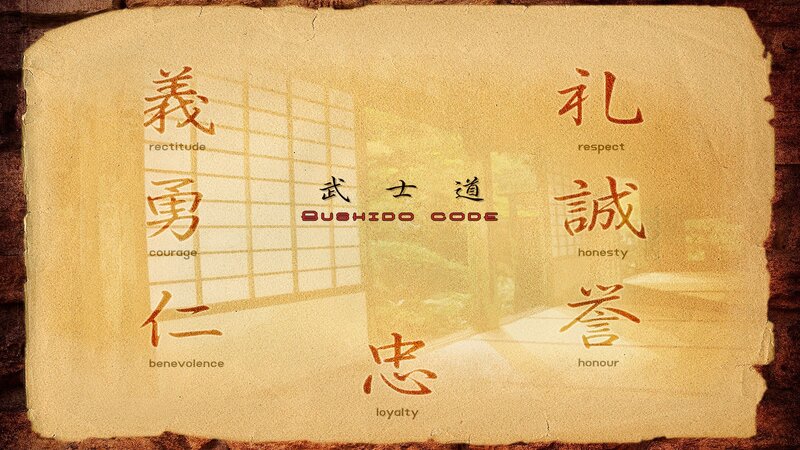 義
rectitude
勇
courage
仁
benevolence
武士道
Bushido code
忠
loyalty
礼
respect
誠
honesty
誉
honour